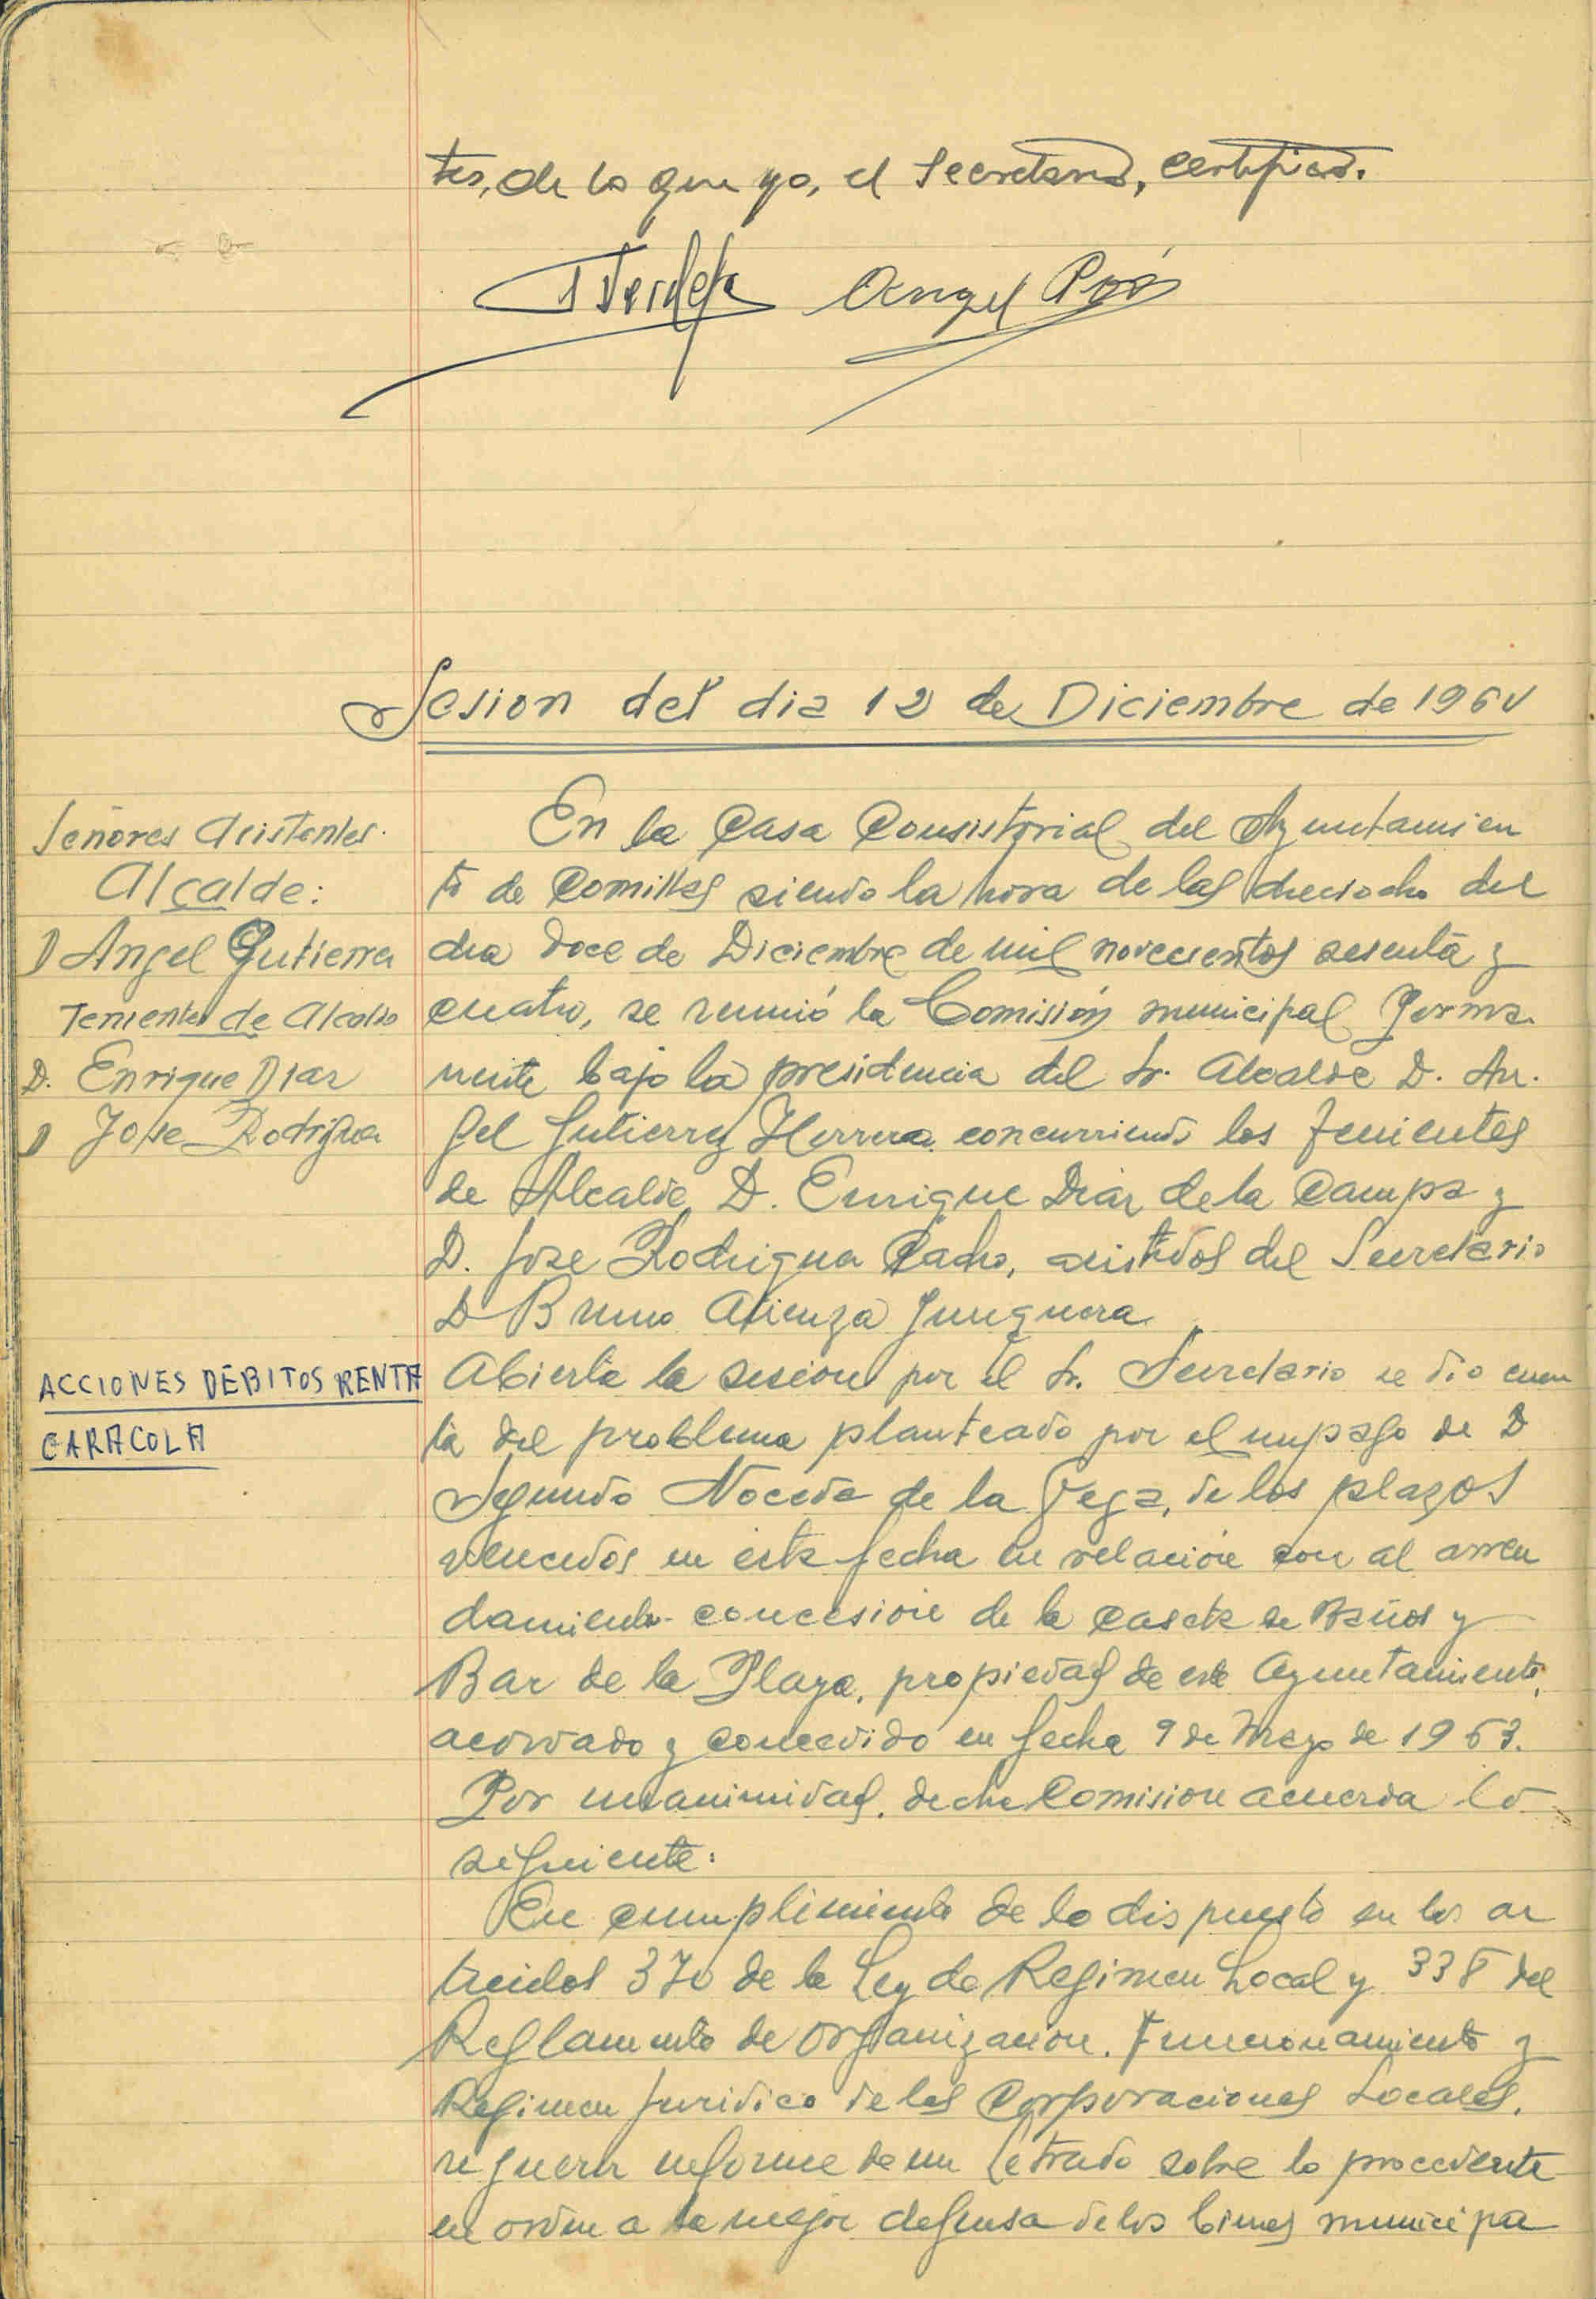 tes, de lo que yo, el Secretario, certifico.
Angel
Sesion del dia 12 de Diciembre de 1964
Señores Asistentes.
Alcalde:
D Angel Gutierrez
Tenientes de Alcalde
D. Enrique Diaz
D Jose Rodriguez
En la Casa Consistorial del Ayuntamien
to de Comillas siendo la hora de las dieciocho del
dia doce de Diciembre de mil novecientos sesenta y
cuatro, se reunió la Comisión municipal Perma-
nente bajo la presidencia del Sr. Alcalde D. An-
gel Gutierrez Herrera concurriendo los Tenientes
de Alcalde D. Enrique Diaz de la Campa y
D. Jose Rodriguez Cacho, asistidos del Secretario
D Bruno Atienza Junquera
ACCIONES DEBITOS RENTA
CARACOLA
Abierta la sesion por el Sr. Secretario se dio cuen
ta del problema planteado por el impago de D
Segundo Noceda de la Vega, de los plazos
vencidos en esta fecha en relación con al arren
damiento-concesión de la caseta de Baños y
Bar de la Playa, propiedad de este Ayuntamiento,
acordado y concedido en fecha 9 de Mayo de 1963.
Por unanimidad, dicha Comision acuerda lo
siguiente:
En cumplimiento de lo dispuesto en los ar
ticulos 370 de la Ley de Regimen Local y 338 del
Reglamento de Organizacion, Funcionamiento y
Regimen Juridico de las Corporaciones Locales,
requerir informe de un Letrado sobre lo procedente
en orden a la mejor defensa de los bienes municipa